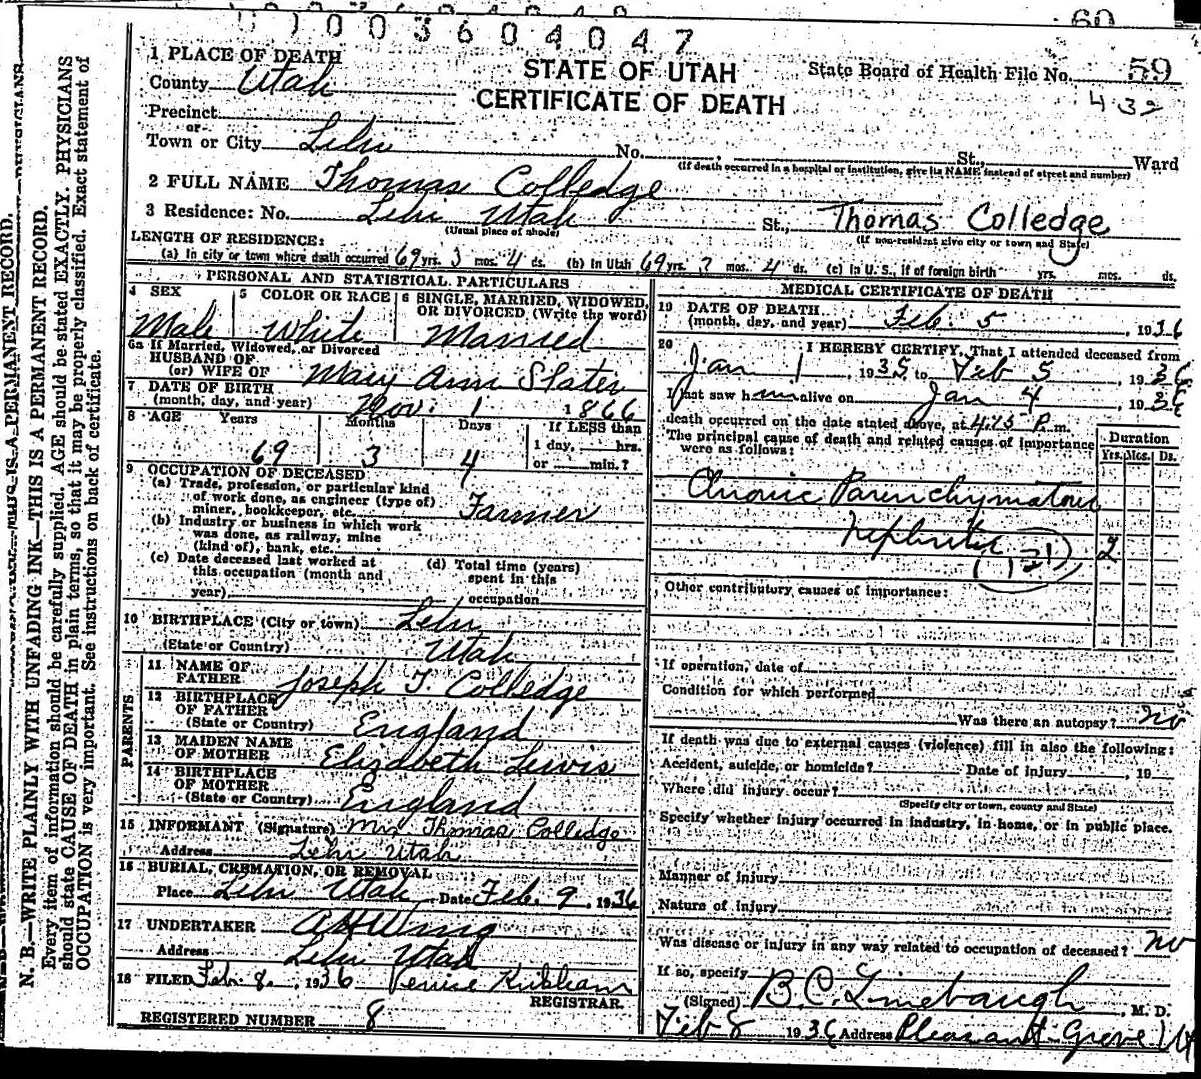 60
1003604047
1 PLACE OF DEATH
County Utah
Precinct
-or-
Town or City Lehi No. St., Ward
(If death occurred in a hospital or institution, give its NAME instead of street and number)
STATE OF UTAH
CERTIFICATE OF DEATH
State Board of Health File No. 59
432
2 FULL NAME Thomas Colledge
3 Residence: No. Lehi Utah St., Thomas Colledge
(Usual place of abode) (If non-resident give city or town and State)
LENGTH OF RESIDENCE:
(a) In city or town where death occurred 69 yrs. 3 mos. 4 ds. (b) In Utah 69 yrs. 3 mos. 4 ds. (c) In U. S., if of foreign birth yrs. mos. ds.
PERSONAL AND STATISTICAL PARTICULARS
4 SEX
Male
5 COLOR OR RACE
White
6 SINGLE, MARRIED, WIDOWED,
OR DIVORCED (Write the word)
Married
6a If Married, Widowed, or Divorced
HUSBAND OF
(or) WIFE OF Mary Ann Slater
7 DATE OF BIRTH
(month, day, and year) Nov. 1 1866
8 AGE Years Months Days If LESS than
1 day, hrs.
69 3 4 or min.?
9 OCCUPATION OF DECEASED
(a) Trade, profession, or particular kind
of work done, as engineer (type of)
miner, bookkeeper, etc. Farmer
(b) Industry or business in which work
was done, as railway, mine
(kind of), bank, etc.
(c) Date deceased last worked at
this occupation (month and
year)
(d) Total time (years)
spent in this
occupation
10 BIRTHPLACE (City or town) Lehi
(State or Country) Utah
PARENTS
11 NAME OF
FATHER Joseph T. Colledge
12 BIRTHPLACE
OF FATHER
(State or Country) England
13 MAIDEN NAME
OF MOTHER Elizabeth Lewis
14 BIRTHPLACE
OF MOTHER
(State or Country) England
15 INFORMANT (Signature) Mrs Thomas Colledge
Address Lehi Utah
16 BURIAL, CREMATION, OR REMOVAL
Place Lehi Utah Date Feb. 9, 1936
17 UNDERTAKER A H Wing
Address Lehi Utah
18 FILED Feb. 8, 1936 Kirkham
REGISTRAR.
REGISTERED NUMBER 8
MEDICAL CERTIFICATE OF DEATH
19 DATE OF DEATH
(month, day, and year) Feb. 5, 1936
20 I HEREBY CERTIFY, That I attended deceased from
Jan 1, 1935 to Feb 5, 1936
I last saw him alive on Jan 4, 1936
death occurred on the date stated above, at 4:15 P.m.
The principal cause of death and related causes of importance
were as follows:
Duration
Yrs. Mos. Ds.
Chronic Parenchymatous
Nephritis 2
(121)
Other contributory causes of importance:
If operation, date of
Condition for which performed
Was there an autopsy? No
If death was due to external causes (violence) fill in also the following:
Accident, suicide, or homicide? Date of injury , 19
Where did injury occur?
(Specify city or town, county and State)
Specify whether injury occurred in industry, in home, or in public place.
Manner of injury
Nature of injury
Was disease or injury in any way related to occupation of deceased? No
If so, specify
(Signed) B. C. Linebaugh, M. D.
Feb 8 1936 Address Pleasant Grove Ut
N. B.—WRITE PLAINLY WITH UNFADING INK—THIS IS A PERMANENT RECORD.
Every item of information should be carefully supplied. AGE should be stated EXACTLY. PHYSICIANS
should state CAUSE OF DEATH in plain terms, so that it may be properly classified. Exact statement of
OCCUPATION is very important. See instructions on back of certificate.